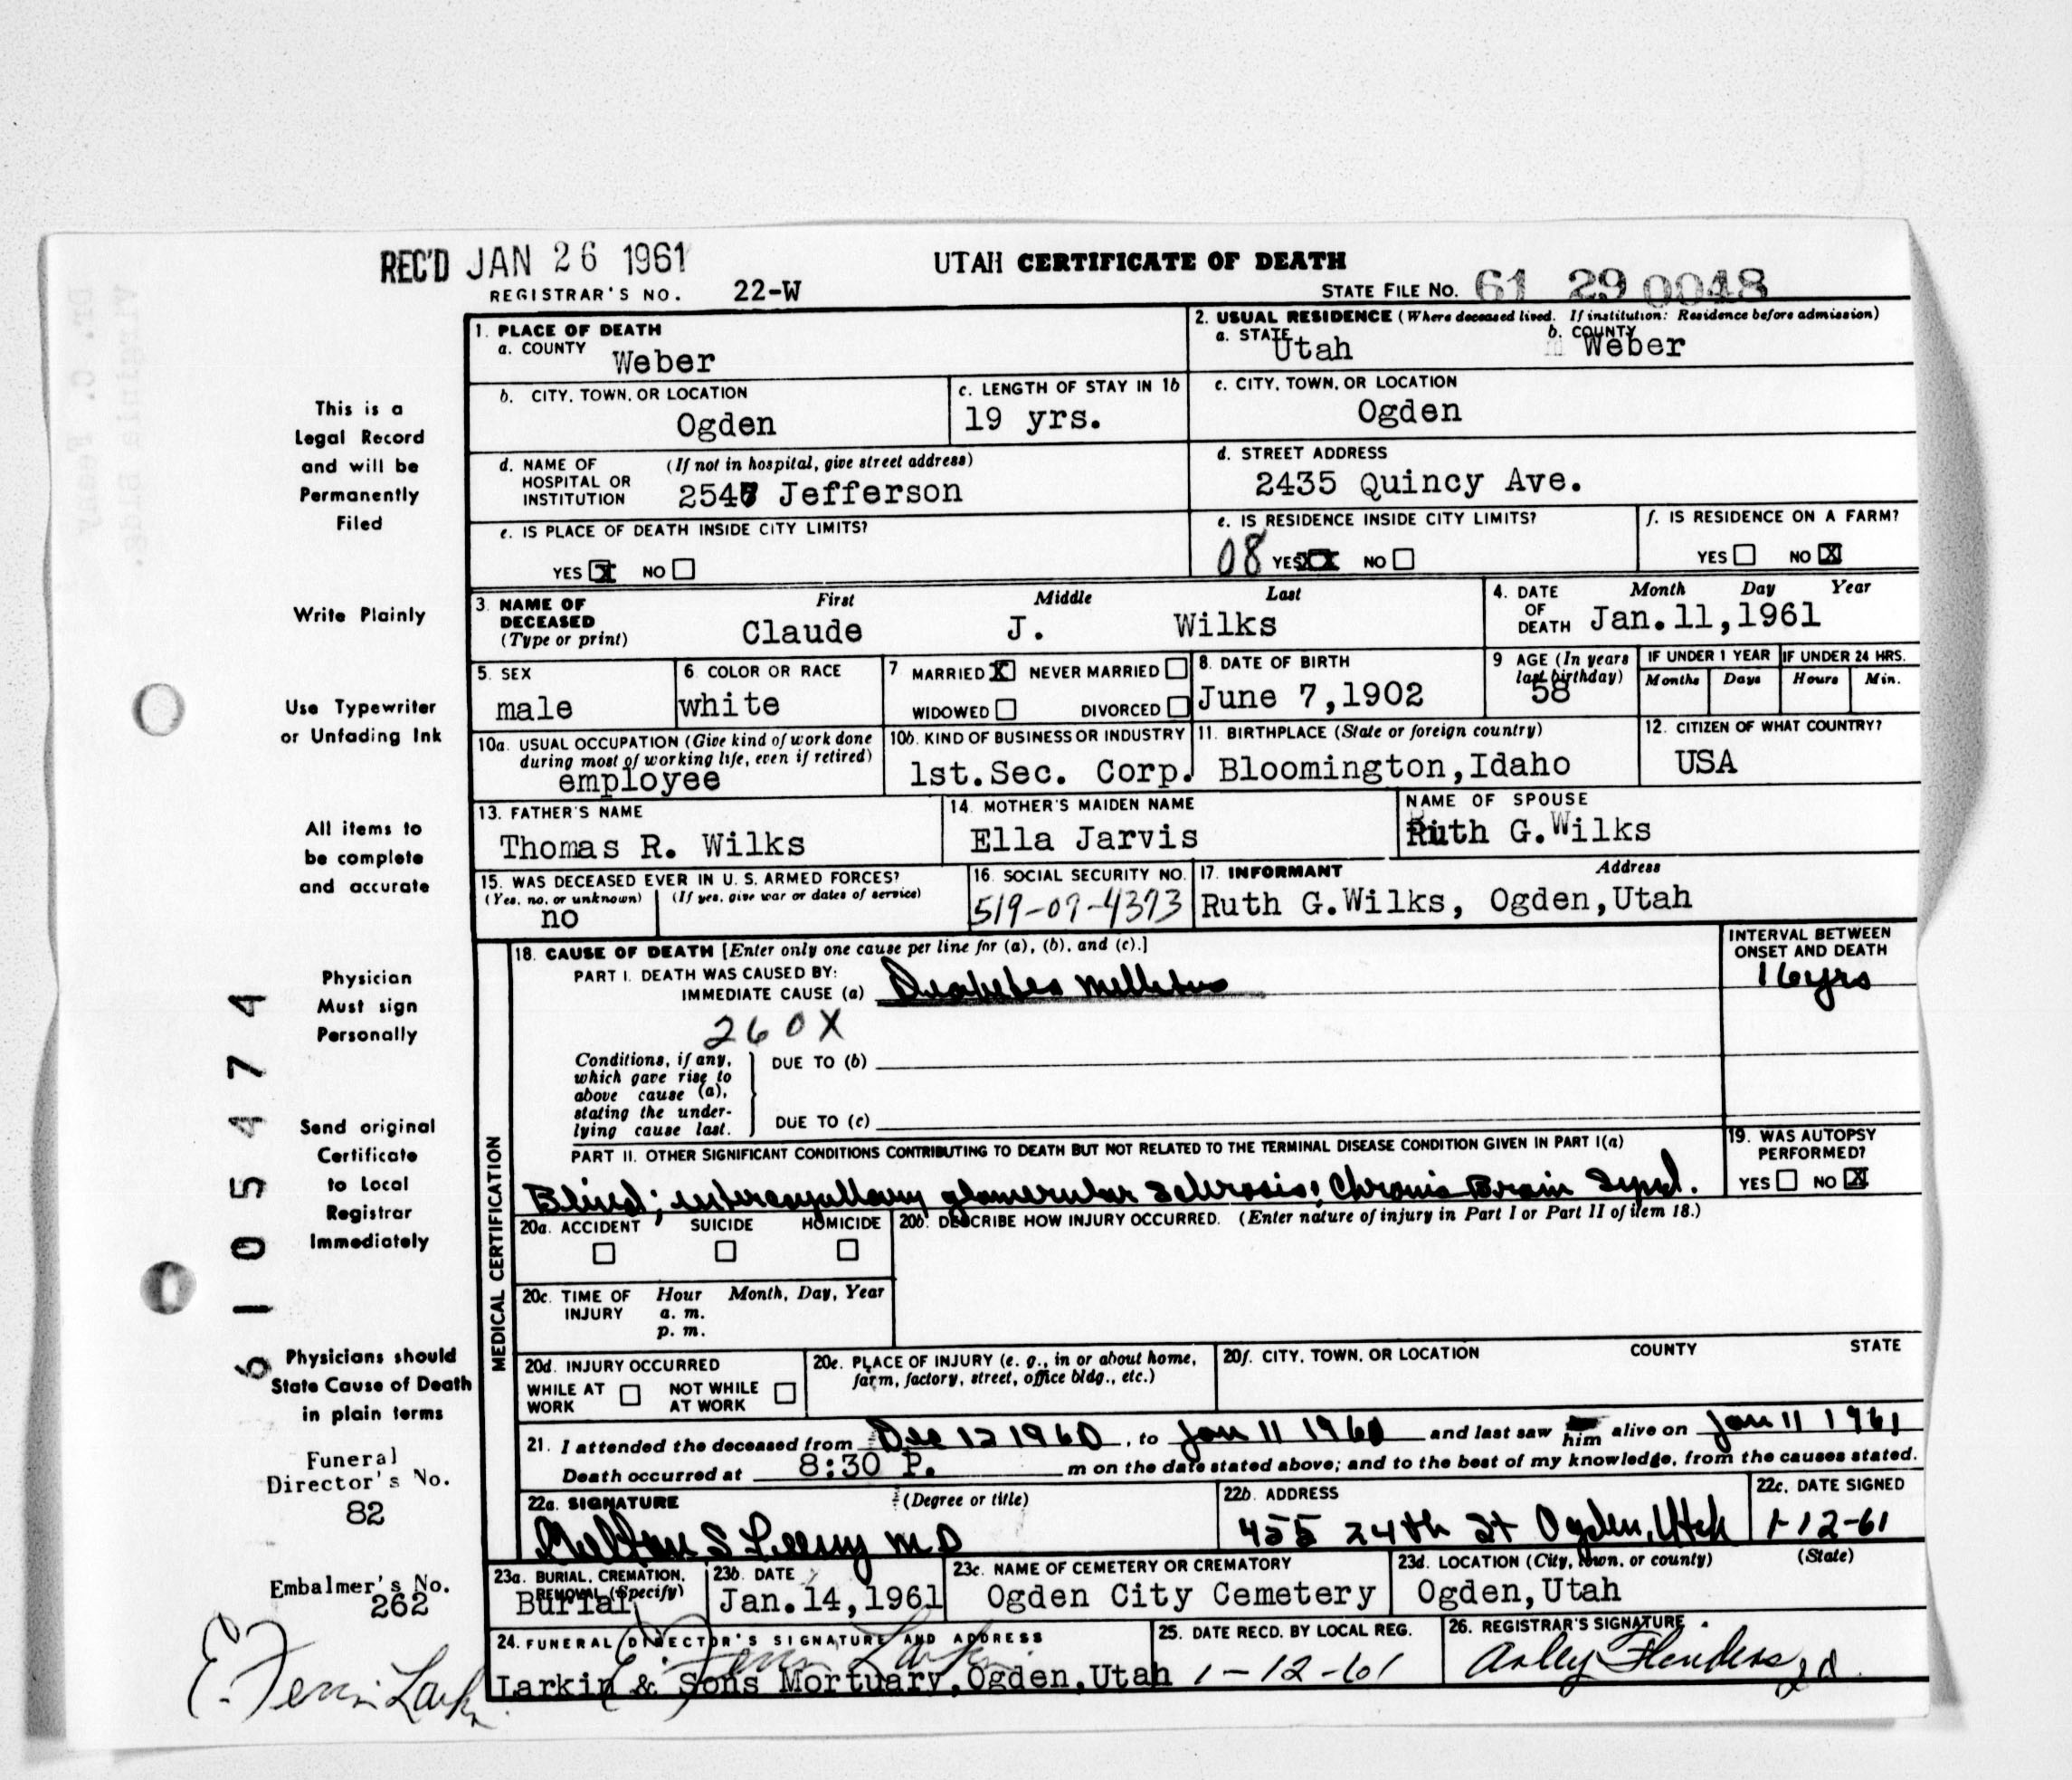 REC'D JAN 26 1961
UTAH CERTIFICATE OF DEATH
REGISTRAR'S NO. 22-W
STATE FILE NO. 61 29 0048
1. PLACE OF DEATH
a. COUNTY Weber
2. USUAL RESIDENCE (Where deceased lived. If institution: Residence before admission)
a. STATE Utah b. COUNTY Weber
b. CITY, TOWN, OR LOCATION Ogden
c. LENGTH OF STAY IN 1b 19 yrs.
c. CITY, TOWN, OR LOCATION Ogden
d. NAME OF HOSPITAL OR INSTITUTION (If not in hospital, give street address)
Jefferson
d. STREET ADDRESS
2435 Quincy Ave.
e. IS PLACE OF DEATH INSIDE CITY LIMITS?
YES X NO
e. IS RESIDENCE INSIDE CITY LIMITS?
08 YES X NO
f. IS RESIDENCE ON A FARM?
YES NO X
3. NAME OF DECEASED (Type or print)
First Middle Last
Claude J. Wilks
4. DATE OF DEATH Month Day Year
Jan.11,1961
5. SEX
male
6. COLOR OR RACE
white
7 MARRIED X NEVER MARRIED
WIDOWED DIVORCED
8. DATE OF BIRTH
June 7,1902
9 AGE (In years last birthday)
58
IF UNDER 1 YEAR
Months Days
IF UNDER 24 HRS.
Hours Min.
10a. USUAL OCCUPATION (Give kind of work done during most of working life, even if retired)
employee
10b. KIND OF BUSINESS OR INDUSTRY
1st.Sec. Corp.
11. BIRTHPLACE (State or foreign country)
Bloomington,Idaho
12. CITIZEN OF WHAT COUNTRY?
USA
13. FATHER'S NAME
Thomas R. Wilks
14. MOTHER'S MAIDEN NAME
Ella Jarvis
NAME OF SPOUSE
Ruth G.Wilks
15. WAS DECEASED EVER IN U. S. ARMED FORCES?
(Yes, no, or unknown) (If yes, give war or dates of service)
no
16. SOCIAL SECURITY NO.
519-07-4373
17. INFORMANT Address
Ruth G.Wilks, Ogden,Utah
18. CAUSE OF DEATH [Enter only one cause per line for (a), (b), and (c).]
INTERVAL BETWEEN ONSET AND DEATH
PART I. DEATH WAS CAUSED BY:
IMMEDIATE CAUSE (a) Diabetes Mellitus
16 yrs
260X
Conditions, if any, which gave rise to above cause (a), stating the underlying cause last.
DUE TO (b)
DUE TO (c)
PART II. OTHER SIGNIFICANT CONDITIONS CONTRIBUTING TO DEATH BUT NOT RELATED TO THE TERMINAL DISEASE CONDITION GIVEN IN PART I(a)
Blind; intercapillary glomerular sclerosis; Chronic Brain
19. WAS AUTOPSY PERFORMED?
YES NO X
MEDICAL CERTIFICATION
20a. ACCIDENT SUICIDE HOMICIDE
20b. DESCRIBE HOW INJURY OCCURRED. (Enter nature of injury in Part I or Part II of item 18.)
20c. TIME OF INJURY Hour Month, Day, Year
a. m.
p. m.
20d. INJURY OCCURRED
WHILE AT WORK NOT WHILE AT WORK
20e. PLACE OF INJURY (e. g., in or about home, farm, factory, street, office bldg., etc.)
20f. CITY, TOWN, OR LOCATION COUNTY STATE
21. I attended the deceased from Dec 12 1960, to Jan 11 and last saw him alive on Jan 11 1961
Death occurred at 8:30 P. m on the date stated above; and to the best of my knowledge, from the causes stated.
22a. SIGNATURE (Degree or title)
S M D
22b. ADDRESS
455 24th St Ogden, Utah
22c. DATE SIGNED
1-12-61
23a. BURIAL, CREMATION, REMOVAL (Specify)
Burial
23b. DATE
Jan.14,1961
23c. NAME OF CEMETERY OR CREMATORY
Ogden City Cemetery
23d. LOCATION (City, town, or county) (State)
Ogden,Utah
24. FUNERAL DIRECTOR'S SIGNATURE AND ADDRESS
Larkin & Sons Mortuary,Ogden,Utah
25. DATE RECD. BY LOCAL REG.
1-12-61
26. REGISTRAR'S SIGNATURE
This is a
Legal Record
and will be
Permanently
Filed
Write Plainly
Use Typewriter
or Unfading Ink
All items to
be complete
and accurate
Physician
Must sign
Personally
Send original
Certificate
to Local
Registrar
Immediately
Physicians should
State Cause of Death
in plain terms
Funeral
Director's No.
82
Embalmer's No.
262
E. Ferrin Larkin
6105474